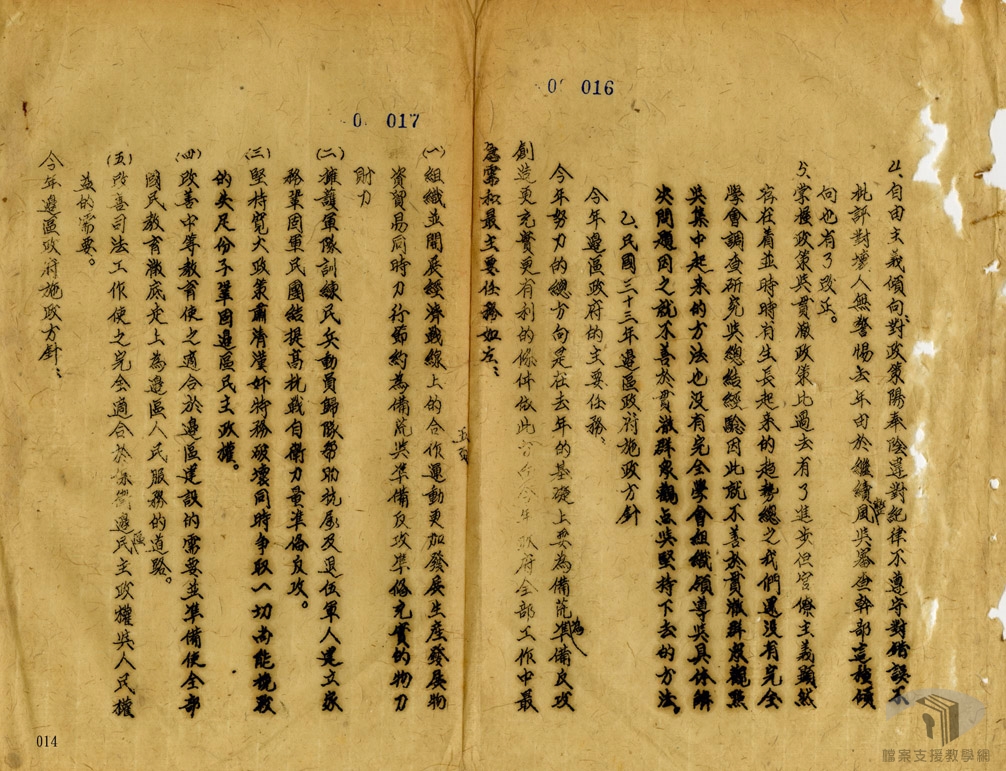 016
4、自由主義傾向、對政策陽奉陰違對紀律不遵守對錯誤不
批評對壞人無警惕去年由於繼續整風與審查幹部這種傾
向也有了改正。
5、掌握政策與貫澈政策比過去有了進步但官僚主義顯然
存在着並時時有生長起來的趨勢總之我們還沒有完全
學會調查研究與總結經驗因此就不善於貫澈群眾觀點
與集中起來的方法也沒有完全學會組織領導與具体解
決問題因之就不善於貫澈群眾觀点與堅持下去的方法。
乙、民國三十三年邊區政府施政方針
今年邊區政府的主要任務、
今年努力的總方向是在去年的基礎上要為備荒為準備反攻
創造更充實更有利的條件依此今年政府全部工作中最
為需和最主要任務如左：
017
(一)組織並開展經濟戰線上的合作運動更加發展生產發展物
資貿易同時力行節約為備荒與準備反攻準備充實的物力
財力
(二)擁護軍隊訓練民兵動員歸隊幫助抗屬及退伍軍人建立家
務鞏固軍民團結提高抗戰自衛力量準備反攻。
(三)堅持寬大政策肅清漢奸特務破壞同時爭取一切尚能挽救
的失足份子鞏固邊區民主政權。
(四)改善中等教育使之適合於邊區建設的需要並準備使全部
國民教育澈底走上為邊區人民服務的道路。
(五)改善司法工作使之完全適合於保衛邊區民主政權與人民權
益的需要。
今年邊區政府施政方針：
014
檔案支援教學網